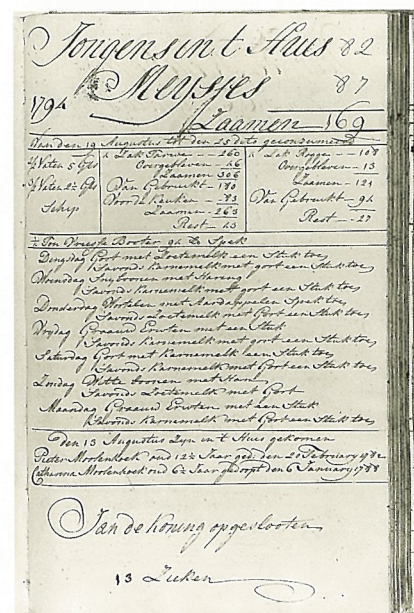 Jongens in t Huis 82
Meysjes 87
1794
Zaamen 169
Van den 19 Augustus tot den 25 dito geconsumeerd
½ Vaten 5 Gds
1 Zak Tarwe 260
1 Zak Rogge 108
Overgebleven 46
Overgebleven 13
Zaamen 306
Zaamen 121
½ Vaten 2½ Gds
Van Gebruikt 180
Van Gebruikt 94
Voor de Keuken 83
Schip
Zaamen 263
Rest 27
Rest 43
¼ Ton Vreesse Booter 94 lb Spek
Dingsdag Gort met Zoetemelk een Stuk toe
Savonds Karnemelk met gort een Stuk toe
Woensdag Snijboonen met Harang
Savonds Karnemelk met gort een Stuk toe
Donderdag Wortelen met Aardappelen Spek toe
Savonds Zoetemelk met Gort een Stuk toe
Vrijdag Graauw Erwten met een Stuk
Savonds Karnemelk met gort een Stuk toe
Saturdag Gort met Karnemelk een Stuk toe
Savonds Karnemelk met Gort een Stuk toe
Zondag Witte boonen met Ham
Savonds Zoetemelk met Gort
Maandag Graauw Erwten met een Stuk
Savonds Karnemelk met Gort een Stuk toe
Den 13 Augustus Zyn in t Huis gekomen
Pieter Moolenhoek oud 12½ Jaar ged: den 20 February 1782
Catharina Moolenhoek oud 6½ Jaar gedoopt den 6 January 1788
Jan de Koning opgeslooten
13 Zieken